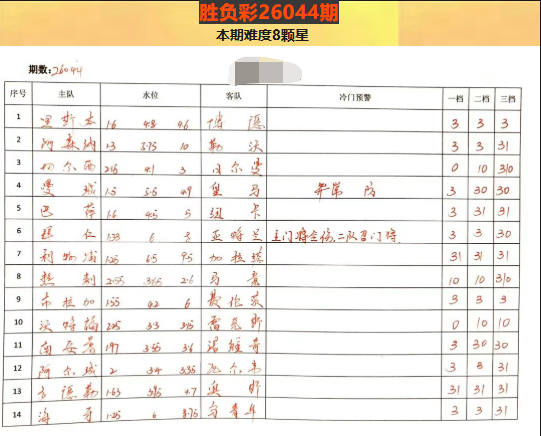 胜负彩26044期
本期难度8颗星
期数: 26044
序号 主队 水位 客队 冷门预警 一档 二档 三档
1 里斯本 1.6 4.8 4.6 博德 3 3 3
2 阿森纳 1.3 3.75 10 勒沃 3 3 31
3 切尔西 2.15 4.1 3 0 10 310
4 曼城 1.5 5.5 4.9 皇马 异常 防 3 30 30
5 巴萨 1.6 4.5 5 纽卡 3 31 31
6 拜仁 1.33 6 亚特兰 3 3 30
7 利物浦 1.25 6.5 9.5 加拉塔 31 31 31
8 热刺 2.55 3.65 2.6 马竞 10 10 310
9 布拉加 1.55 4.2 6 费伦茨 3 3 3
10 沃特福 2.25 3.3 3.15 雷克斯 0 10 10
11 南安普 1.97 3.55 3.6 诺维奇 3 30 30
12 阿尔城 2 3.4 3.35 瓦尔韦 3 3 31
13 方德勒 1.63 3.95 4.7 奥斯 31 31 31
14 海牙 1.25 6 8.75 乌青年 3 3 31